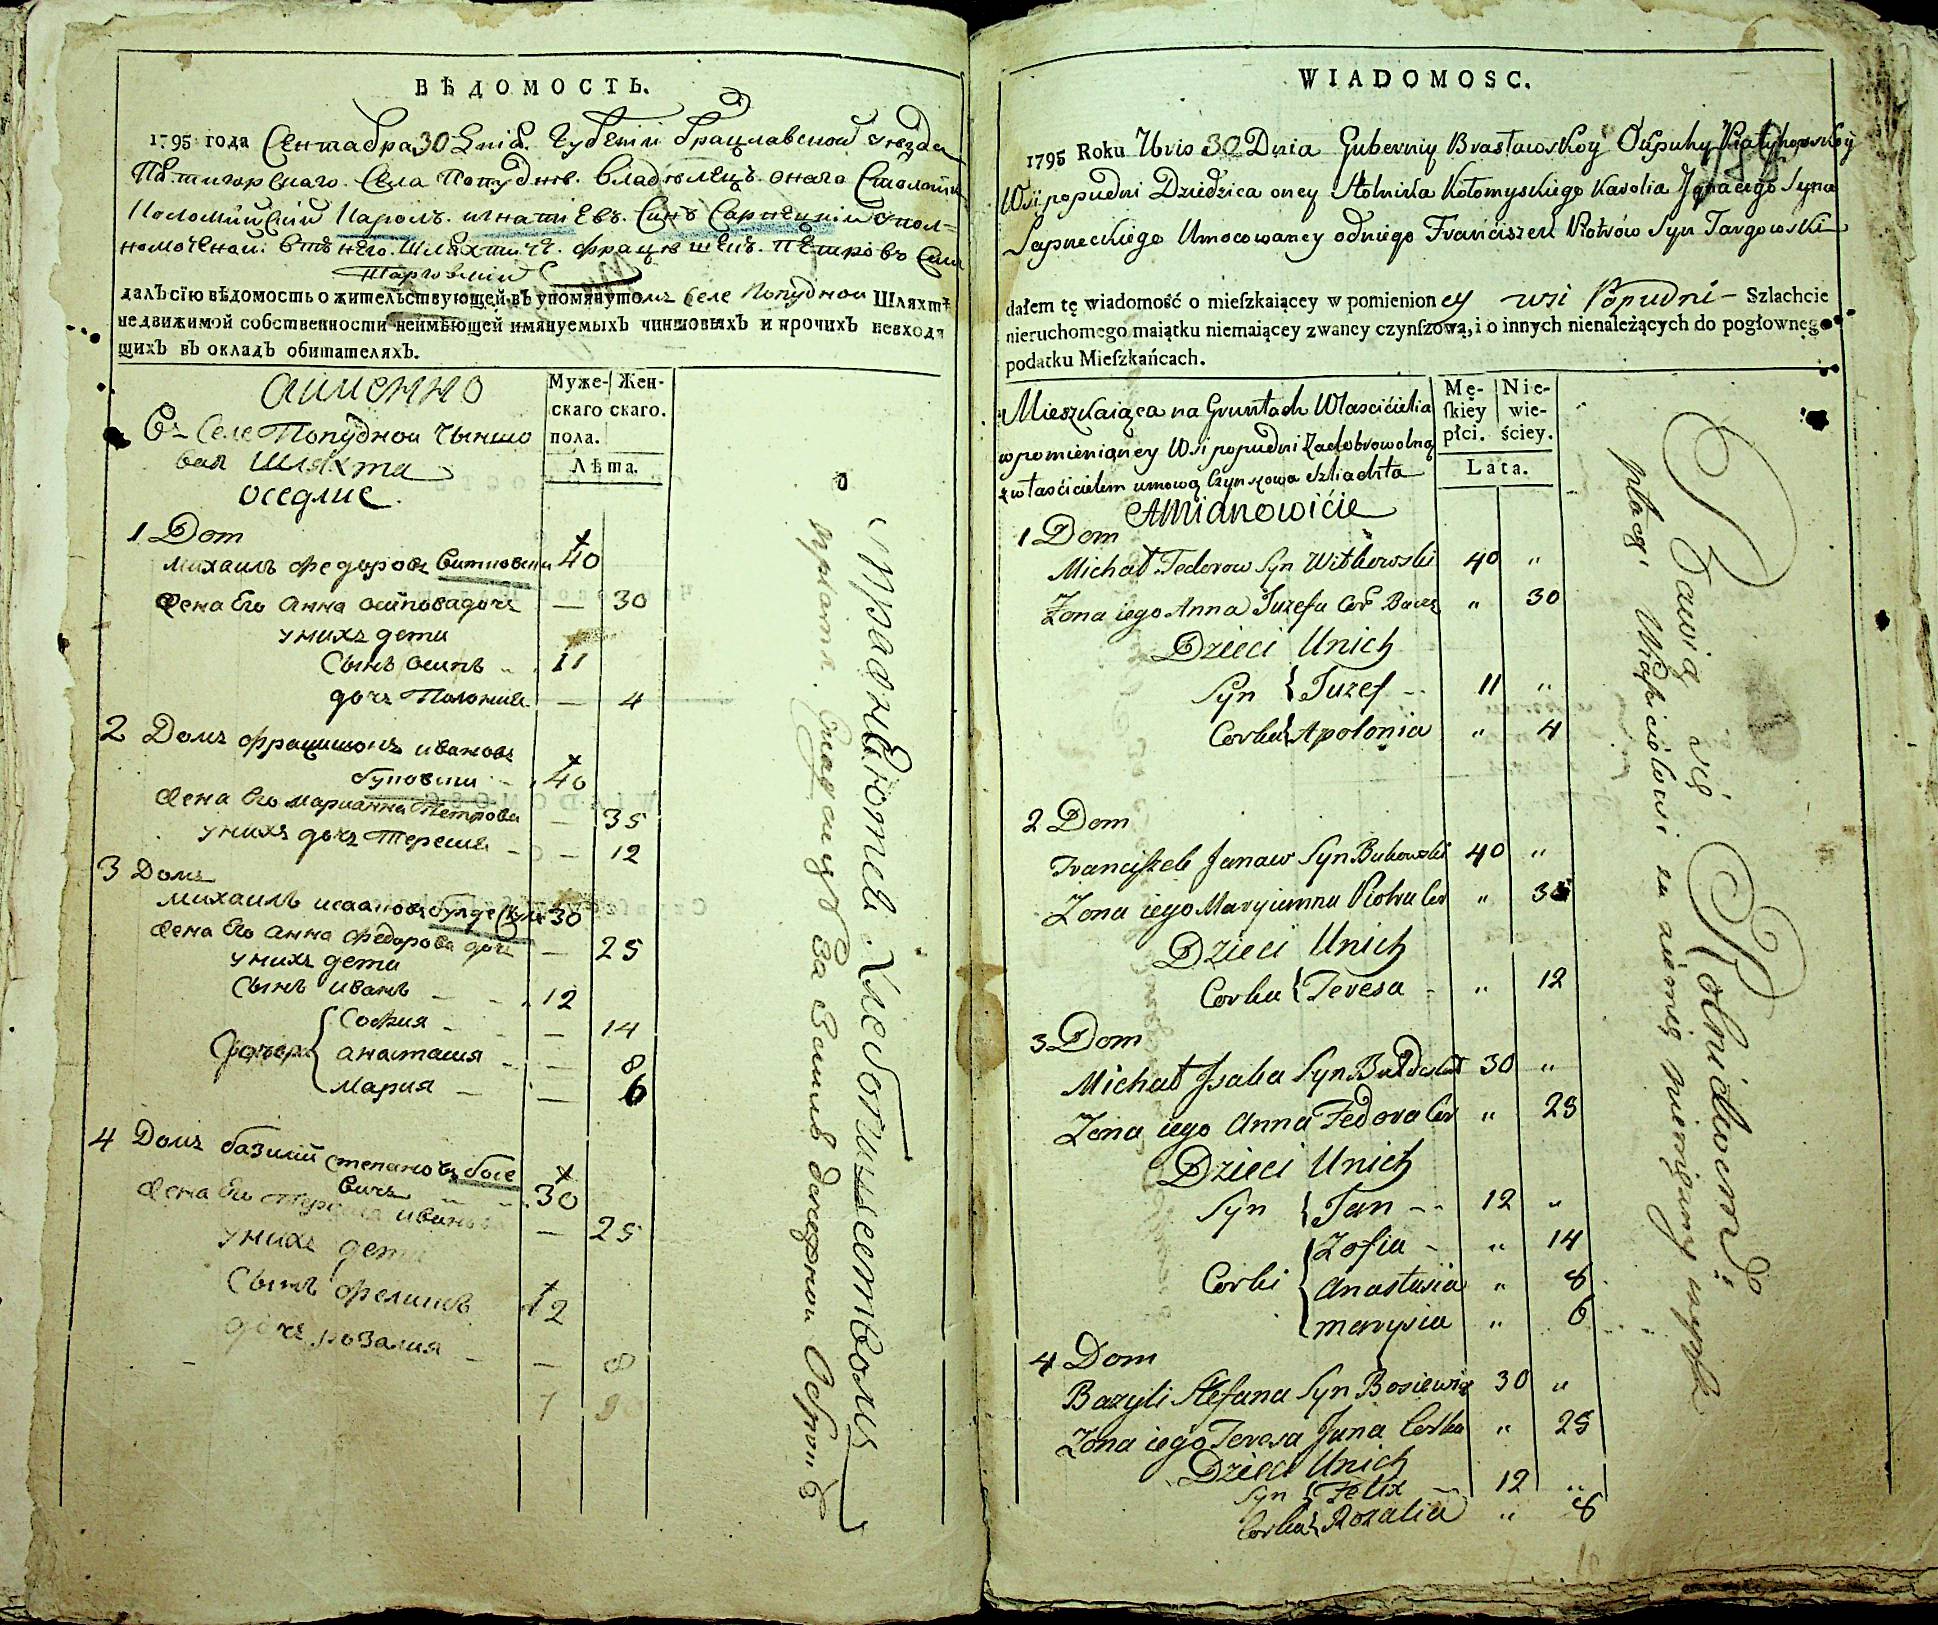 ВѢДОМОСТЬ.
1795 года Сентабра 30 Дніа. Губеніи Брацлавской уѣзда
Пѣтигорскаго. Села Попуднѣ. Владѣлецъ. онаго Столник
Коломийскій Кароль. игнатіевъ. Синъ Сарнецкій упол=
номоченой. Францѣшекъ. Петровъ Син
Тарговскій
далъ сію вѣдомость о жительствующей въ упомянутомъ Селе Попудной Шляхтѣ
недвижимой собственности неимѣющей имянуемыхъ чиншовыхъ и прочихъ невходя
щихъ въ окладъ обитателяхъ.
Муже- Жен-
скаго скаго.
пола.
Лѣта.
аименно
Въ Селе Попудной Чыншо
вая Шляхта
оседлие.
1 Dom
михаилъ Федоровъ Витковски 40
Жена Его Анна осипова дочь — 30
у нихъ дети
Сынъ осипъ 11
дочь Полония — 4
2 Домъ Францишокъ ивановъ
буковски 40
Жена Его Марианна Петрова — 35
у нихъ дочь Тереше — 12
3 Домъ
михаилъ исааковъ 30
Жена Его Анна Федорова дочь — 25
у нихъ дети
Сынъ иванъ 12
Дочери София — 14
анасташия — 8
Мария — 6
4 Домъ базилий Степановъ босе
вичъ 30
Жена Его иванова — 25
у нихъ дети
Сынъ Фелишъ 12
дочь розалия — 8
упражняютца. Хлебопашеством
За Землѣ
WIADOMOSC.
1795 Roku 30 Dnia Guberniy Brasławskoy Okpuhy
Wsi popudni Dziedzica oney Stolnika Kołomyskiego Karolia Ignacego Syna
Sarneckiego Umocowaney odniego Franciszek Piotrów Syn Targowski
dałem tę wiadomość o mieſzkaiącey w pomienioney wsi Popudni — Szlachcie
nieruchomego maiątku niemaiącey zwaney czynſzową, i o innych nienależących do pogłownego
podatku Mieſzkańcach.
Mę- Nie-
ſkiey wie-
płci. ściey.
Lata.
Mieszkaiąca na Gruntach Wlascićielia
w pomienioney Wsi popudni Zadobrowolną
z własćicielem umową Czynszowa szliachta
AMianowićie
1 Dom
Michał Fedorow Syn Witkowski 40 "
Zona iego Anna Juzefa Cor " 30
Dzieci Unich
Syn { Juzef — 11 "
Corka { Apolonia " 4
2 Dom
Franciszek Janaw Syn Bukowski 40 "
Zona iego Maryianna Piotra Cor " 35
Dzieci Unich
Corka { Teresa — " 12
3 Dom
Michał Isaka Syn 30 "
Zona iego Anna Fedora Cor " 25
Dzieci Unich
Syn { Jan — 12 "
Corki { Zofia — " 14
Anastasia " 8
marysia " 6
4 Dom
Bazyli Stefana Syn Bosiewicz 30 "
Zona iego Teresa Jana Corka " 25
Dzieci Unich
Syn { Felix — 12 "
Corka { Rozalia " 8
Bawią się Rolnictwem
płacą Własćicielowi za ziemię